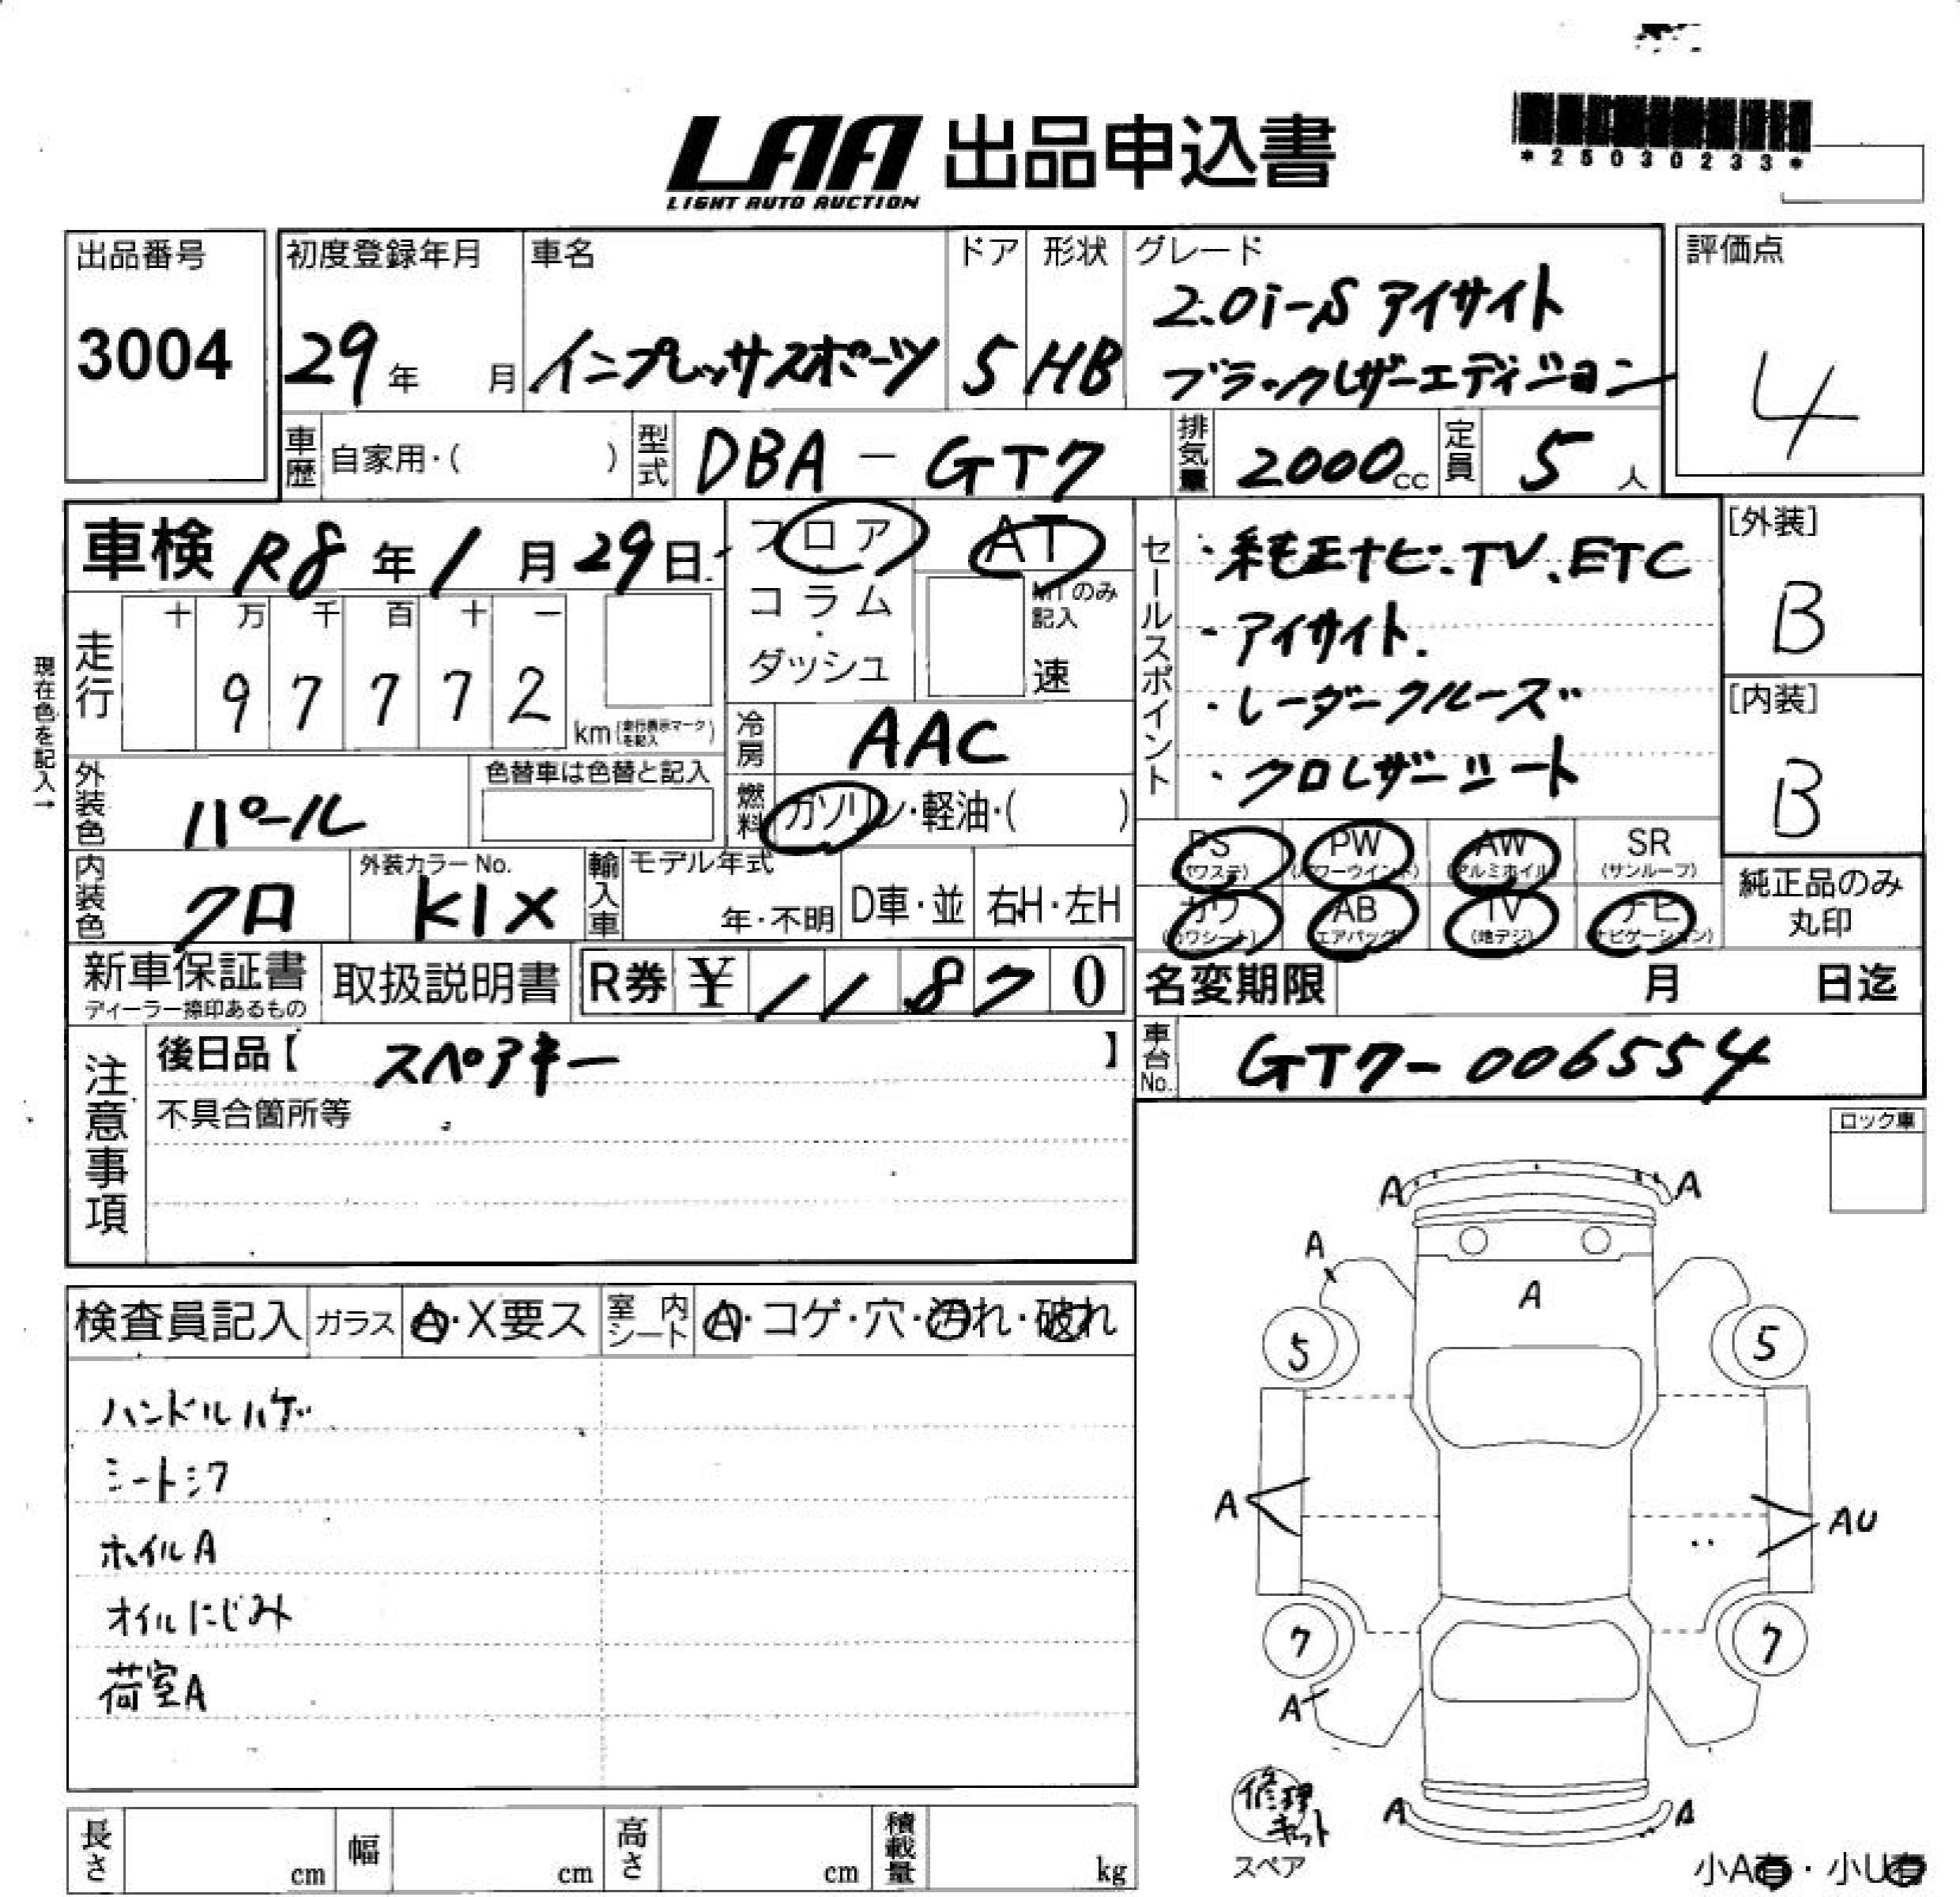 LAA 出品申込書
LIGHT AUTO AUCTION
*25030233*
出品番号
3004
初度登録年月
29年 月
車名
インプレッサスポーツ
ドア
5
形状
HB
グレード
2.0i-S アイサイト
ブラックレザーエディション
評価点
4
車歴 自家用・( )
型式 DBA - GT7
排気量 2000cc
定員 5人
車検 R8年1月29日
フロア
コラム
・
ダッシュ
AT
MTのみ
記入
速
セールスポイント
・純正ナビ・TV、ETC
・アイサイト.
・レーダークルーズ
・クロレザーシート
[外装]
B
[内装]
B
現在色を記入→
走行
十 万 千 百 十 一
9 7 7 7 2
km(走行表示マークを記入)
冷房 AAC
外装色 パール
色替車は色替と記入
燃料 ガソリン・軽油・( )
内装色 クロ
外装カラーNo.
K1X
輸入車
モデル年式
年・不明
D車・並
右H・左H
PS
(パワステ)
PW
(パワーウインド)
AW
(アルミホイル)
SR
(サンルーフ)
カワ
(カワシート)
AB
(エアバッグ)
TV
(地デジ)
ナビ
(ナビゲーション)
純正品のみ
丸印
新車保証書
ディーラー捺印あるもの
取扱説明書
R券 ¥ 1 1 8 7 0
名変期限 月 日迄
車台No. GT7-006554
注意事項
後日品【 スペアキー 】
不具合箇所等
ロック車
検査員記入
ガラス A・X要ス
室内シート A・コゲ・穴・汚れ・破れ
ハンドルハゲ
シートシワ
ホイルA
オイルにじみ
荷室A
A A
A
A
5 5
A AU
7 7
A
A A
修理キット
スペア
小A有・小U有
長さ cm
幅 cm
高さ cm
積載量 kg